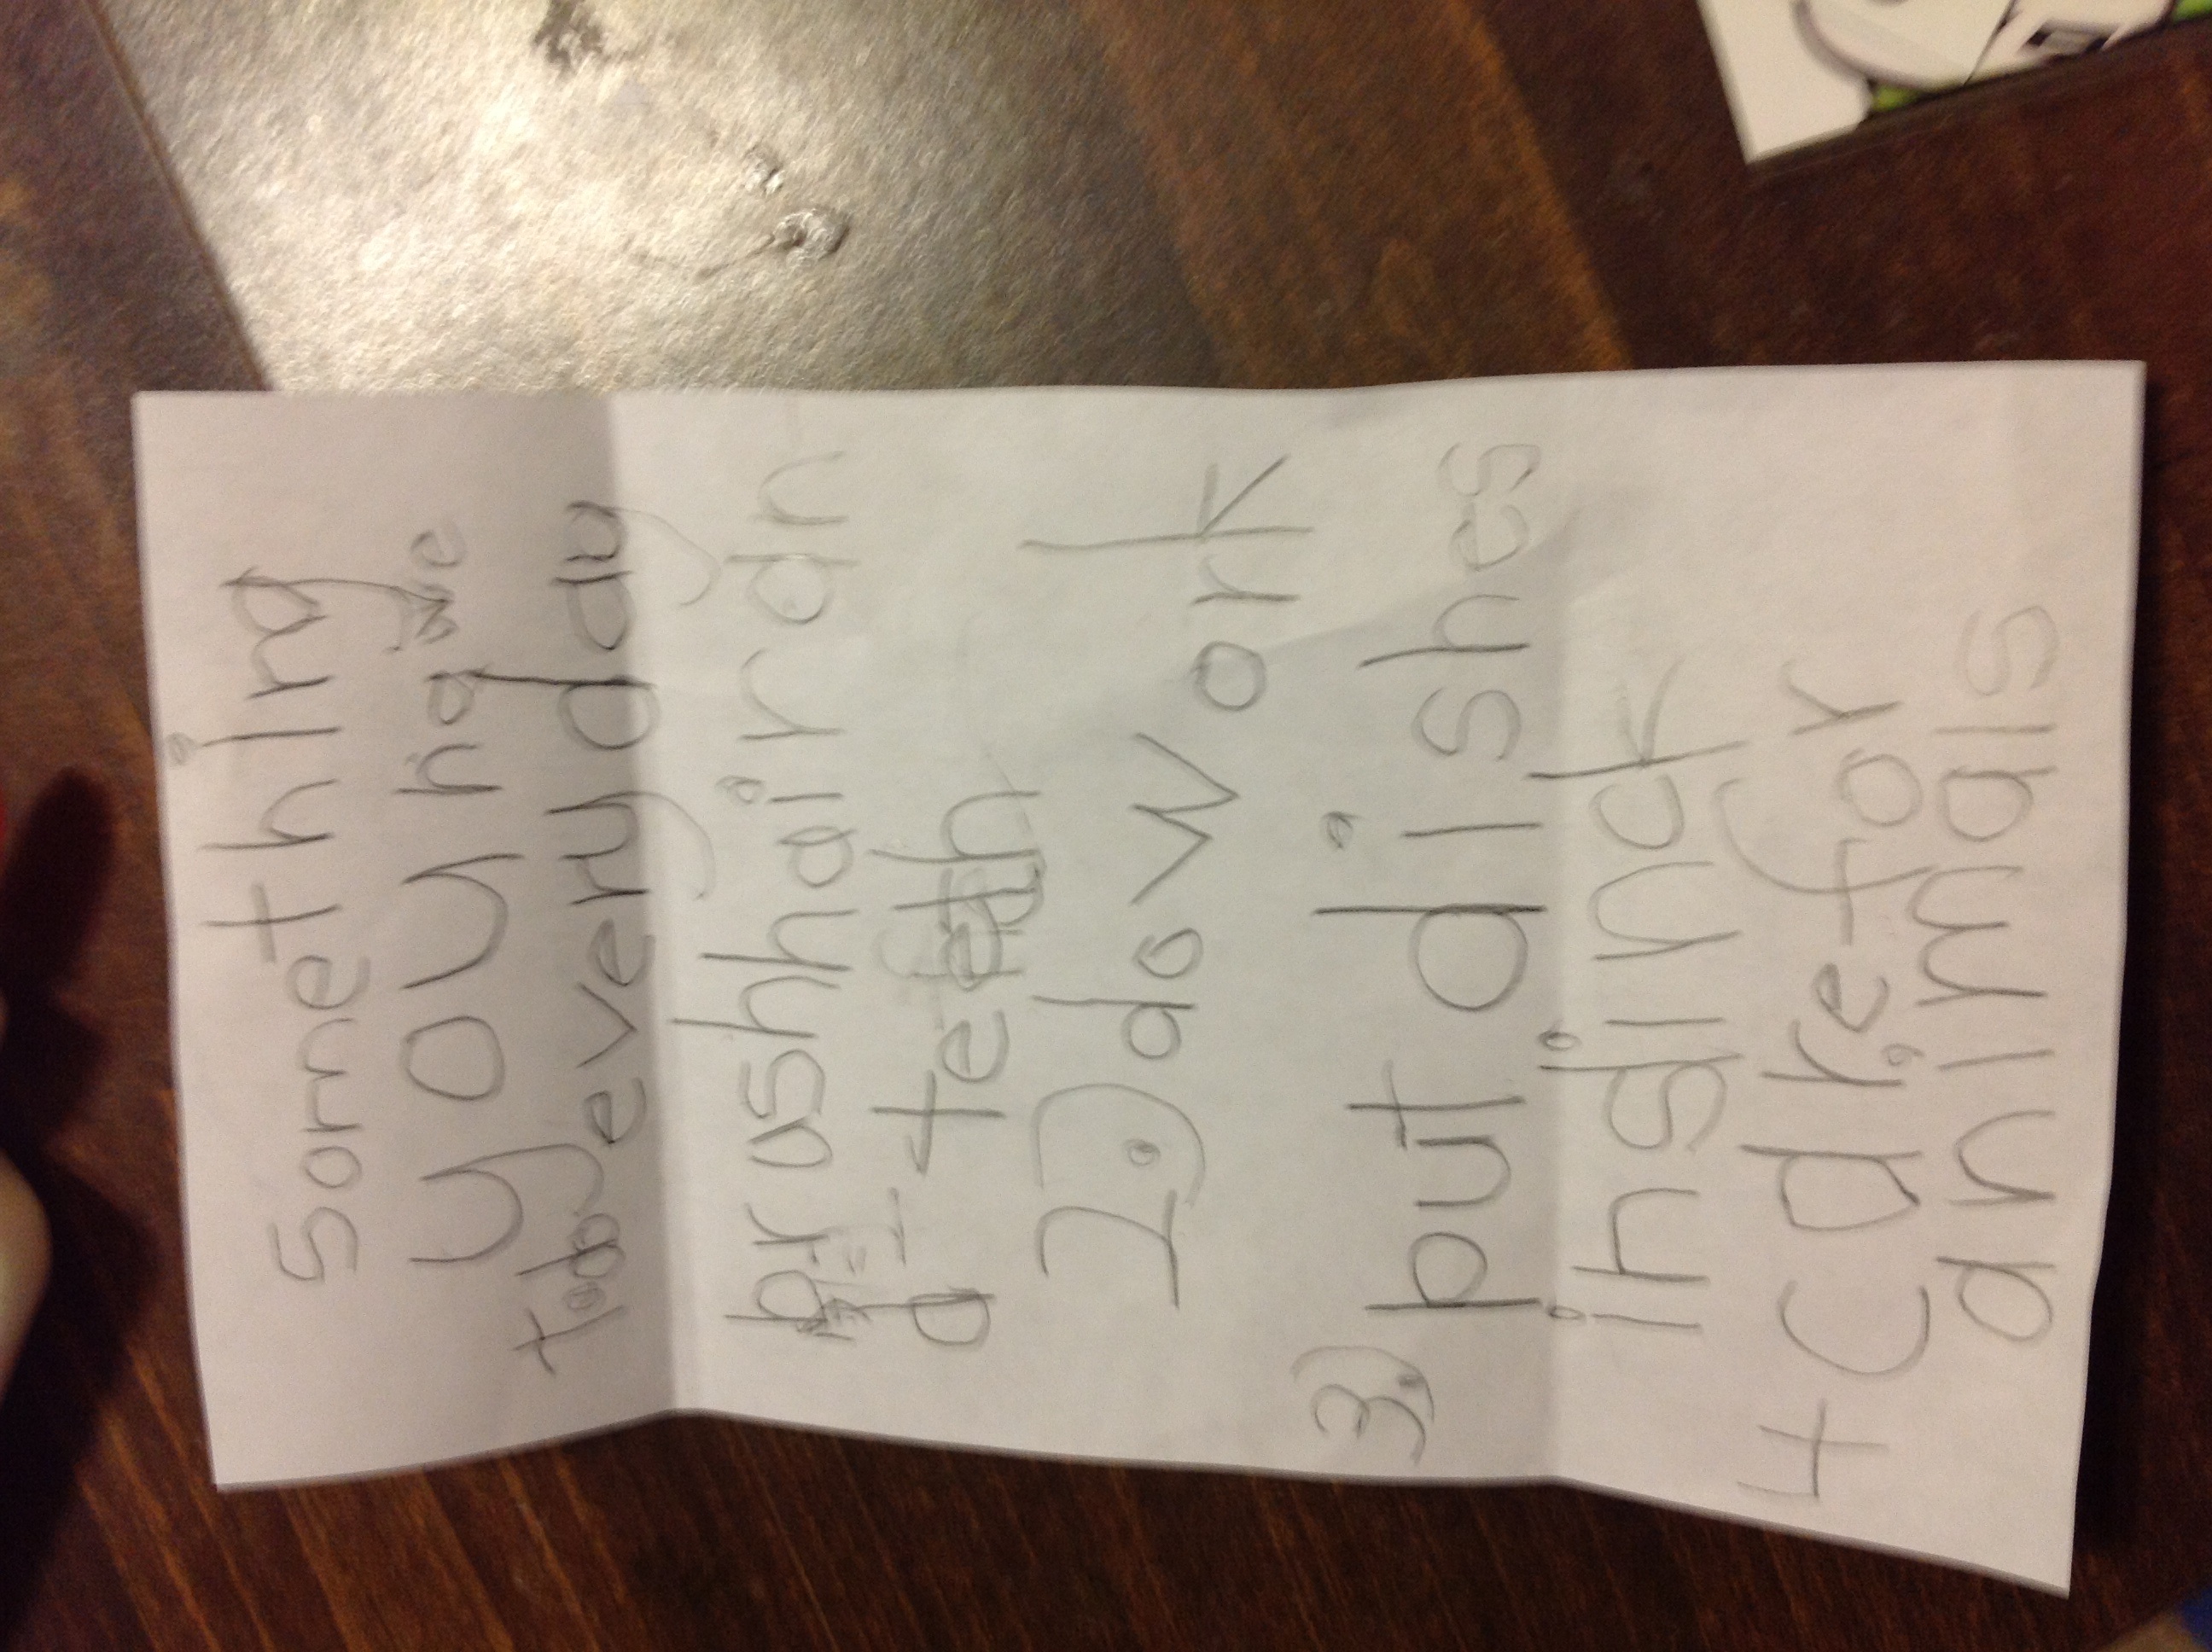 something
you have
to do every day
brushhairan
d teeth
2). do work
3). put dishes
in sinck
4 care for
animals